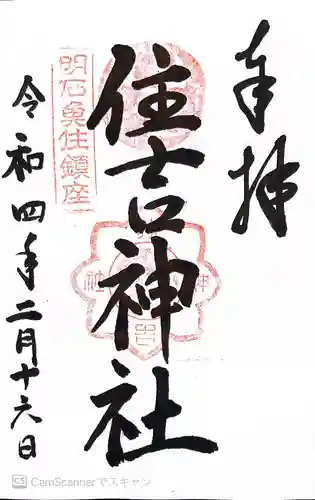 奉拝
住吉神社
明石魚住鎮座
令和四年二月十六日
CS CamScannerでスキャン